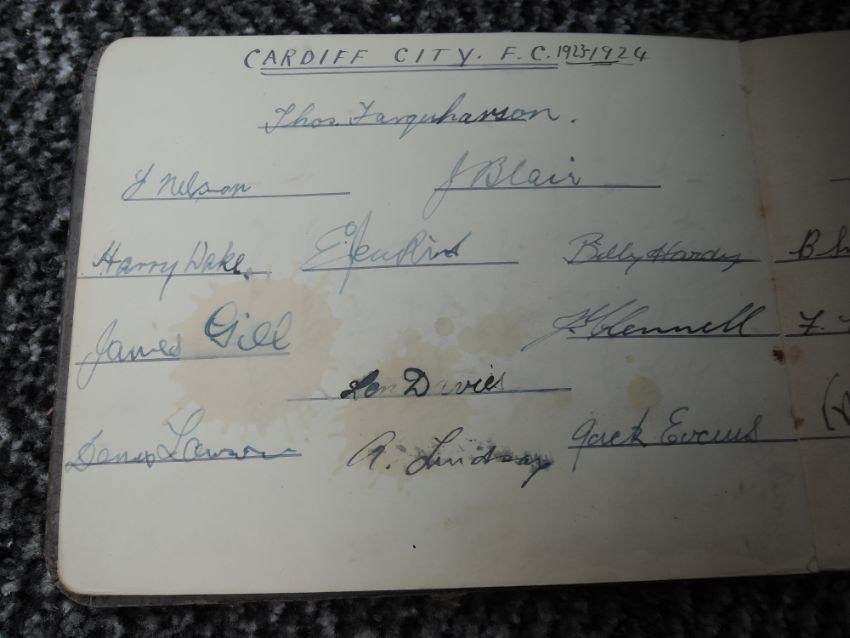 CARDIFF CITY. F.C. 1923-1924
Thos. Farquharson.
J Blair
Nelson
Harry Wake. E Jenkins Billy Hardy B
James Gill Clennell F.
Len Davies
Denis Lawson A. Lindsay Jack Evans